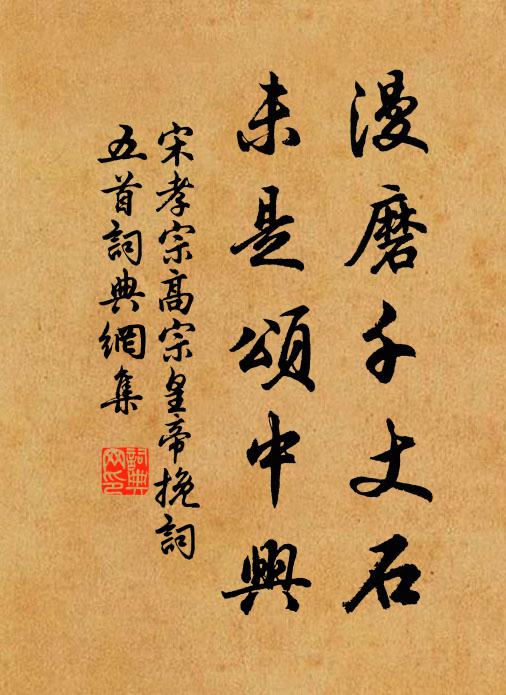 漫磨千丈石
未是頌中興
宋孝宗高宗皇帝挽詞
五首詞典網集
詞典網印